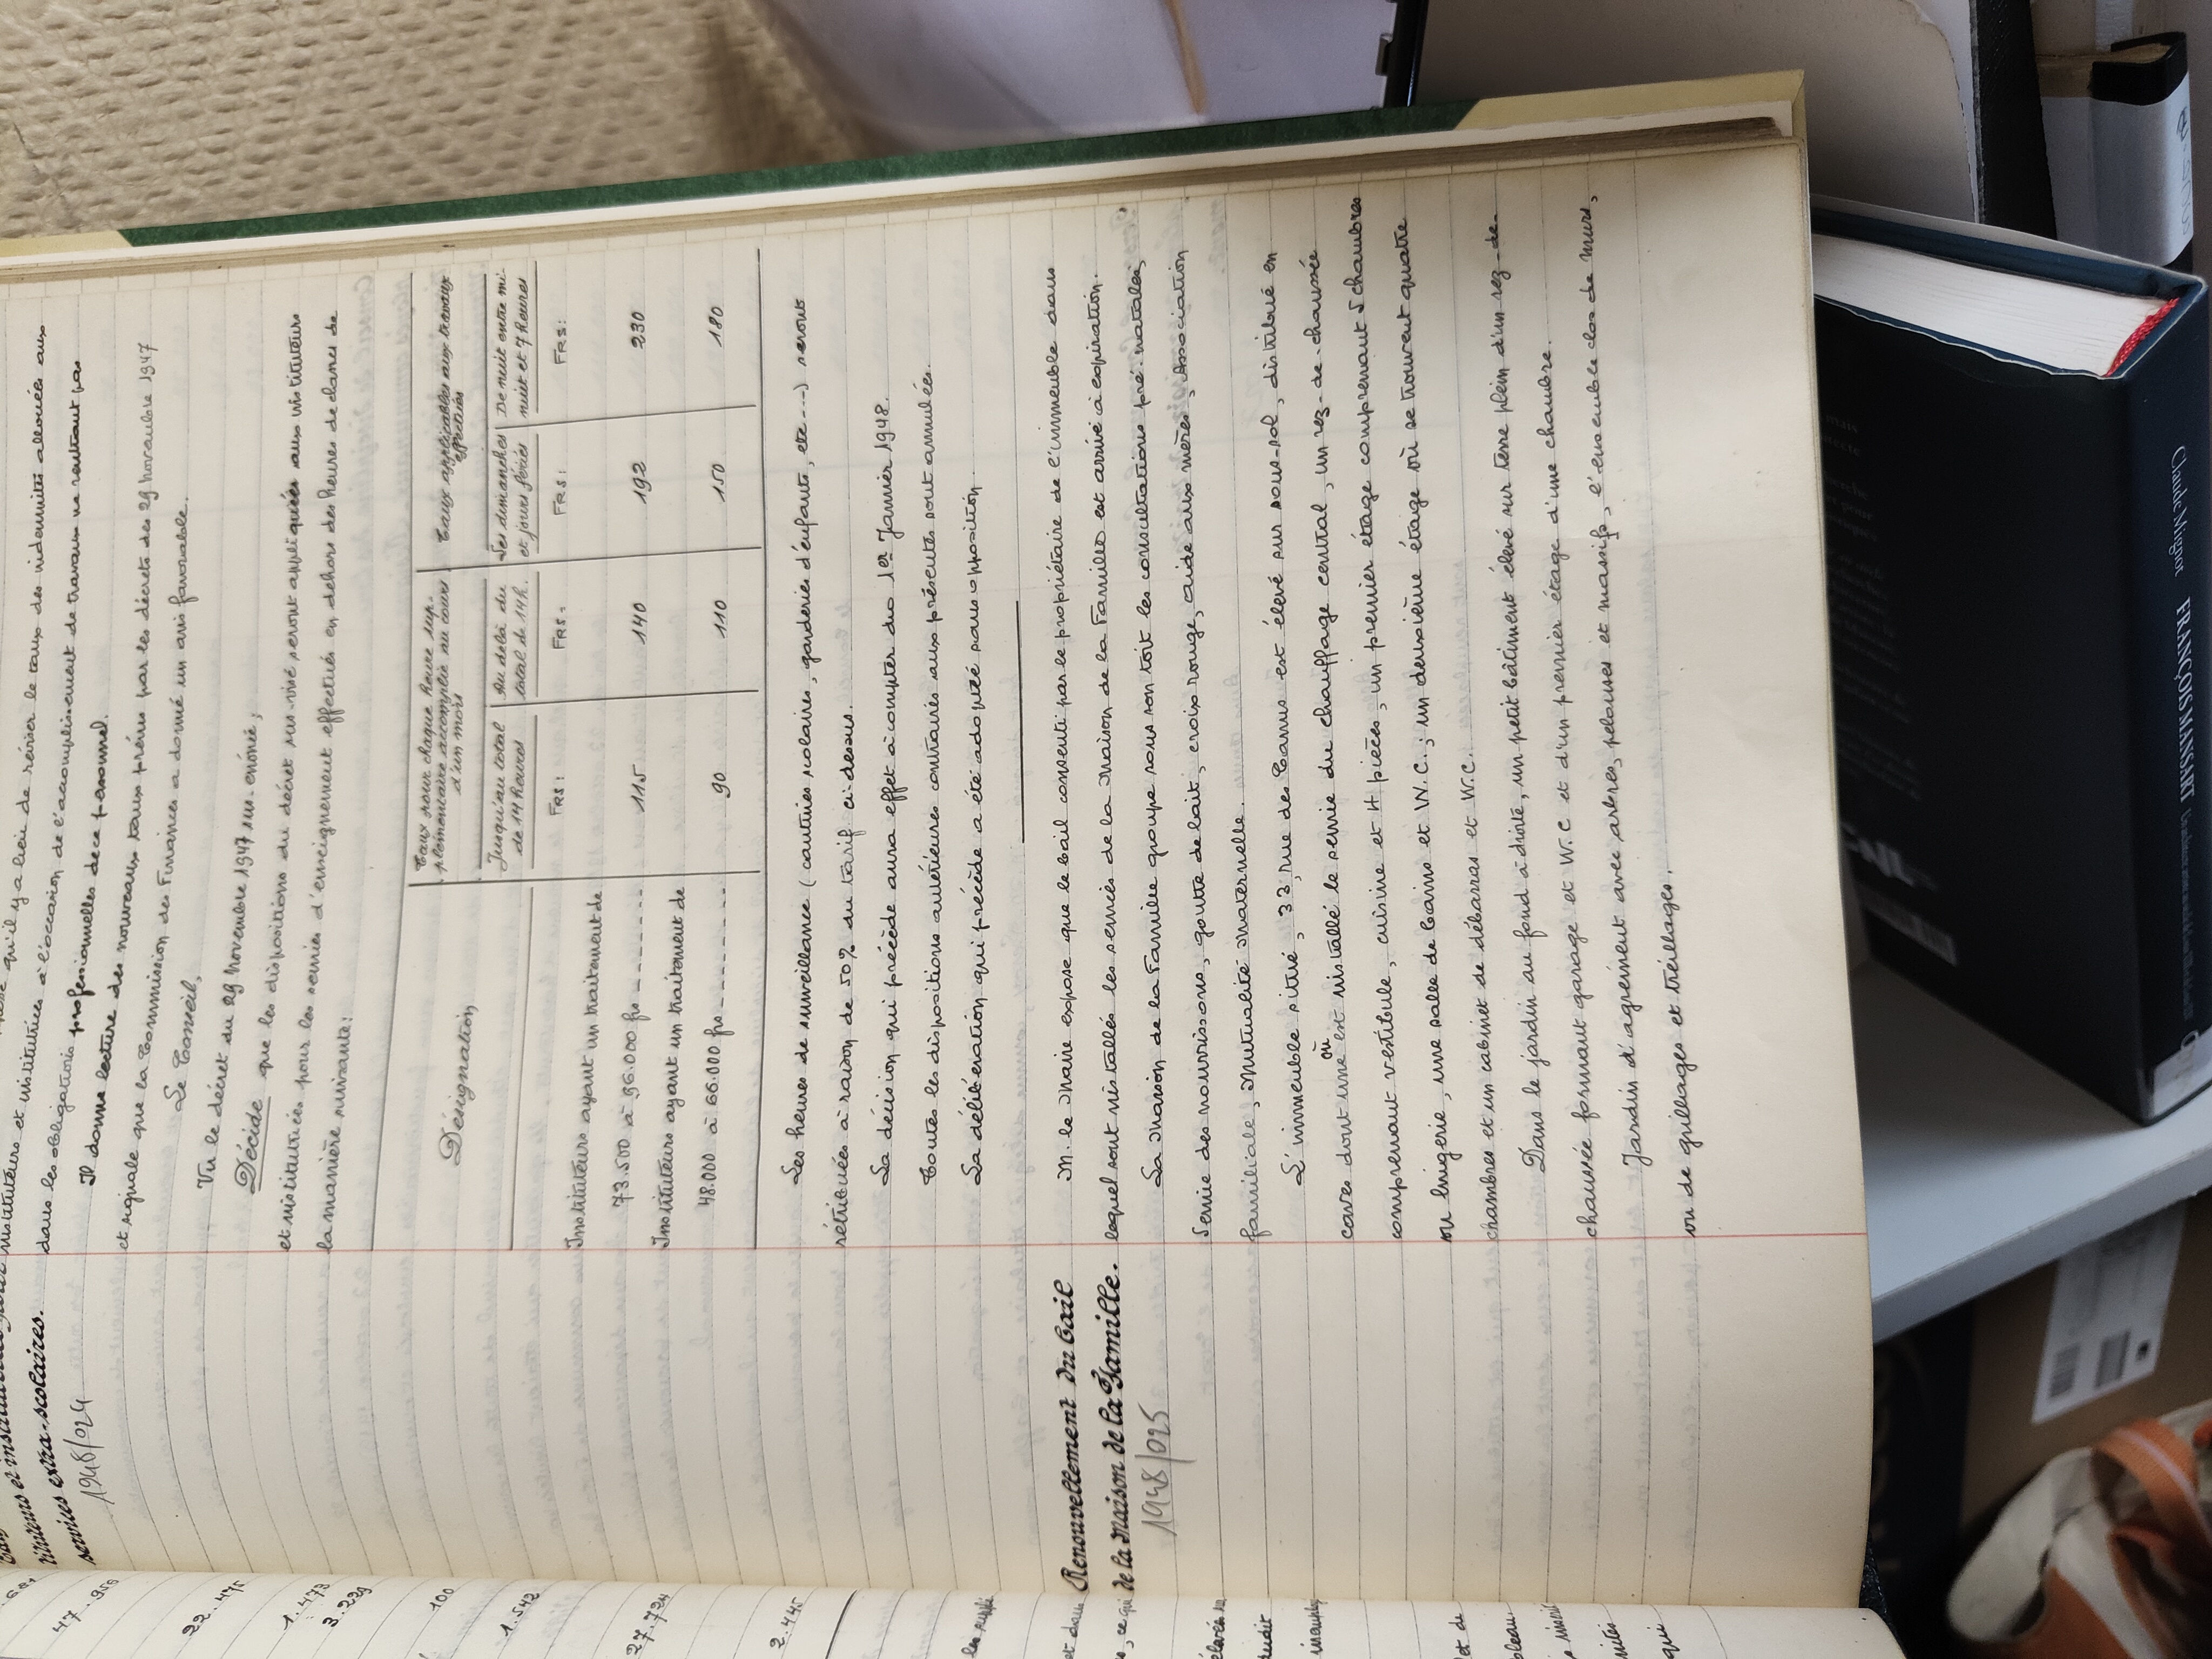 instituteurs et institutrices
services extra-scolaires.
1948/024
qu'il y a lieu de réviser le taux des indemnités allouées aux
instituteurs et institutrices à l'occasion de l'accomplissement de travaux ne rentrant pas
dans les obligations professionnelles de ce personnel.
Il donne lecture des nouveaux taux prévus par les décrets des 29 Novembre 1947
et signale que la Commission des Finances a donné un avis favorable.
Le Conseil,
Vu le décret du 29 Novembre 1947 sus-énoncé;
Décide que les dispositions du décret sus-visé seront appliquées aux instituteurs
et institutrices pour les services d'enseignement effectués en dehors des heures de classes de
la manière suivante:
Désignation
Taux pour chaque heure sup-
plémentaire accomplie au cours
d'un mois
Taux applicables aux travaux
effectués
Jusqu'au total
de 14 heures
Au delà du
total de 14 h.
Les dimanches
et jours fériés
De nuit entre mi-
nuit et 7 heures
FRS: FRS: FRS: FRS:
Instituteurs ayant un traitement de
73.500 à 96.000 frs ------ 115 140 192 230
Instituteurs ayant un traitement de
48.000 à 66.000 frs ------ 90 110 150 180
Les heures de surveillance (cantines scolaires, garderies d'enfants, etc...) seront
rétribuées à raison de 50% du tarif ci-dessus.
La décision qui précède aura effet à compter du 1er Janvier 1948.
Toutes les dispositions antérieures contraires aux présentes sont annulées.
La délibération qui précède a été adoptée sans opposition.
Renouvellement du bail
de la Maison de la Famille.
1948/025
M. le Maire expose que le bail consenti par le propriétaire de l'immeuble dans
lequel sont installés les services de la Maison de la Famille est arrivé à expiration.
La Maison de la Famille groupe sous son toit les consultations pré-natales,
Service des nourrissons, goutte de lait, croix rouge, aide aux mères, Association
familiale, Mutualité Maternelle.
L'immeuble situé, 33, rue des Carrus est élevé sur sous-sol, distribué en
caves dont une où est installé le service du chauffage central, un rez-de-chaussée
comprenant vestibule, cuisine et 4 pièces, un premier étage comprenant 5 chambres
ou lingerie, une salle de bains et W.C.; un deuxième étage où se trouvent quatre
chambres et un cabinet de débarras et W.C.
Dans le jardin au fond à droite, un petit bâtiment élevé sur terre plein d'un rez-de-
chaussée formant garage et W.C et d'un premier étage d'une chambre.
Jardin d'agrément avec arbres, pelouses et massifs, l'ensemble clos de murs,
ou de grillages et treillages.
47.959
22.475
1.473
3.229
100
1.542
27.724
2.445
et dans
, ce qui
et de
qui
Claude Mignot FRANÇOIS MANSART